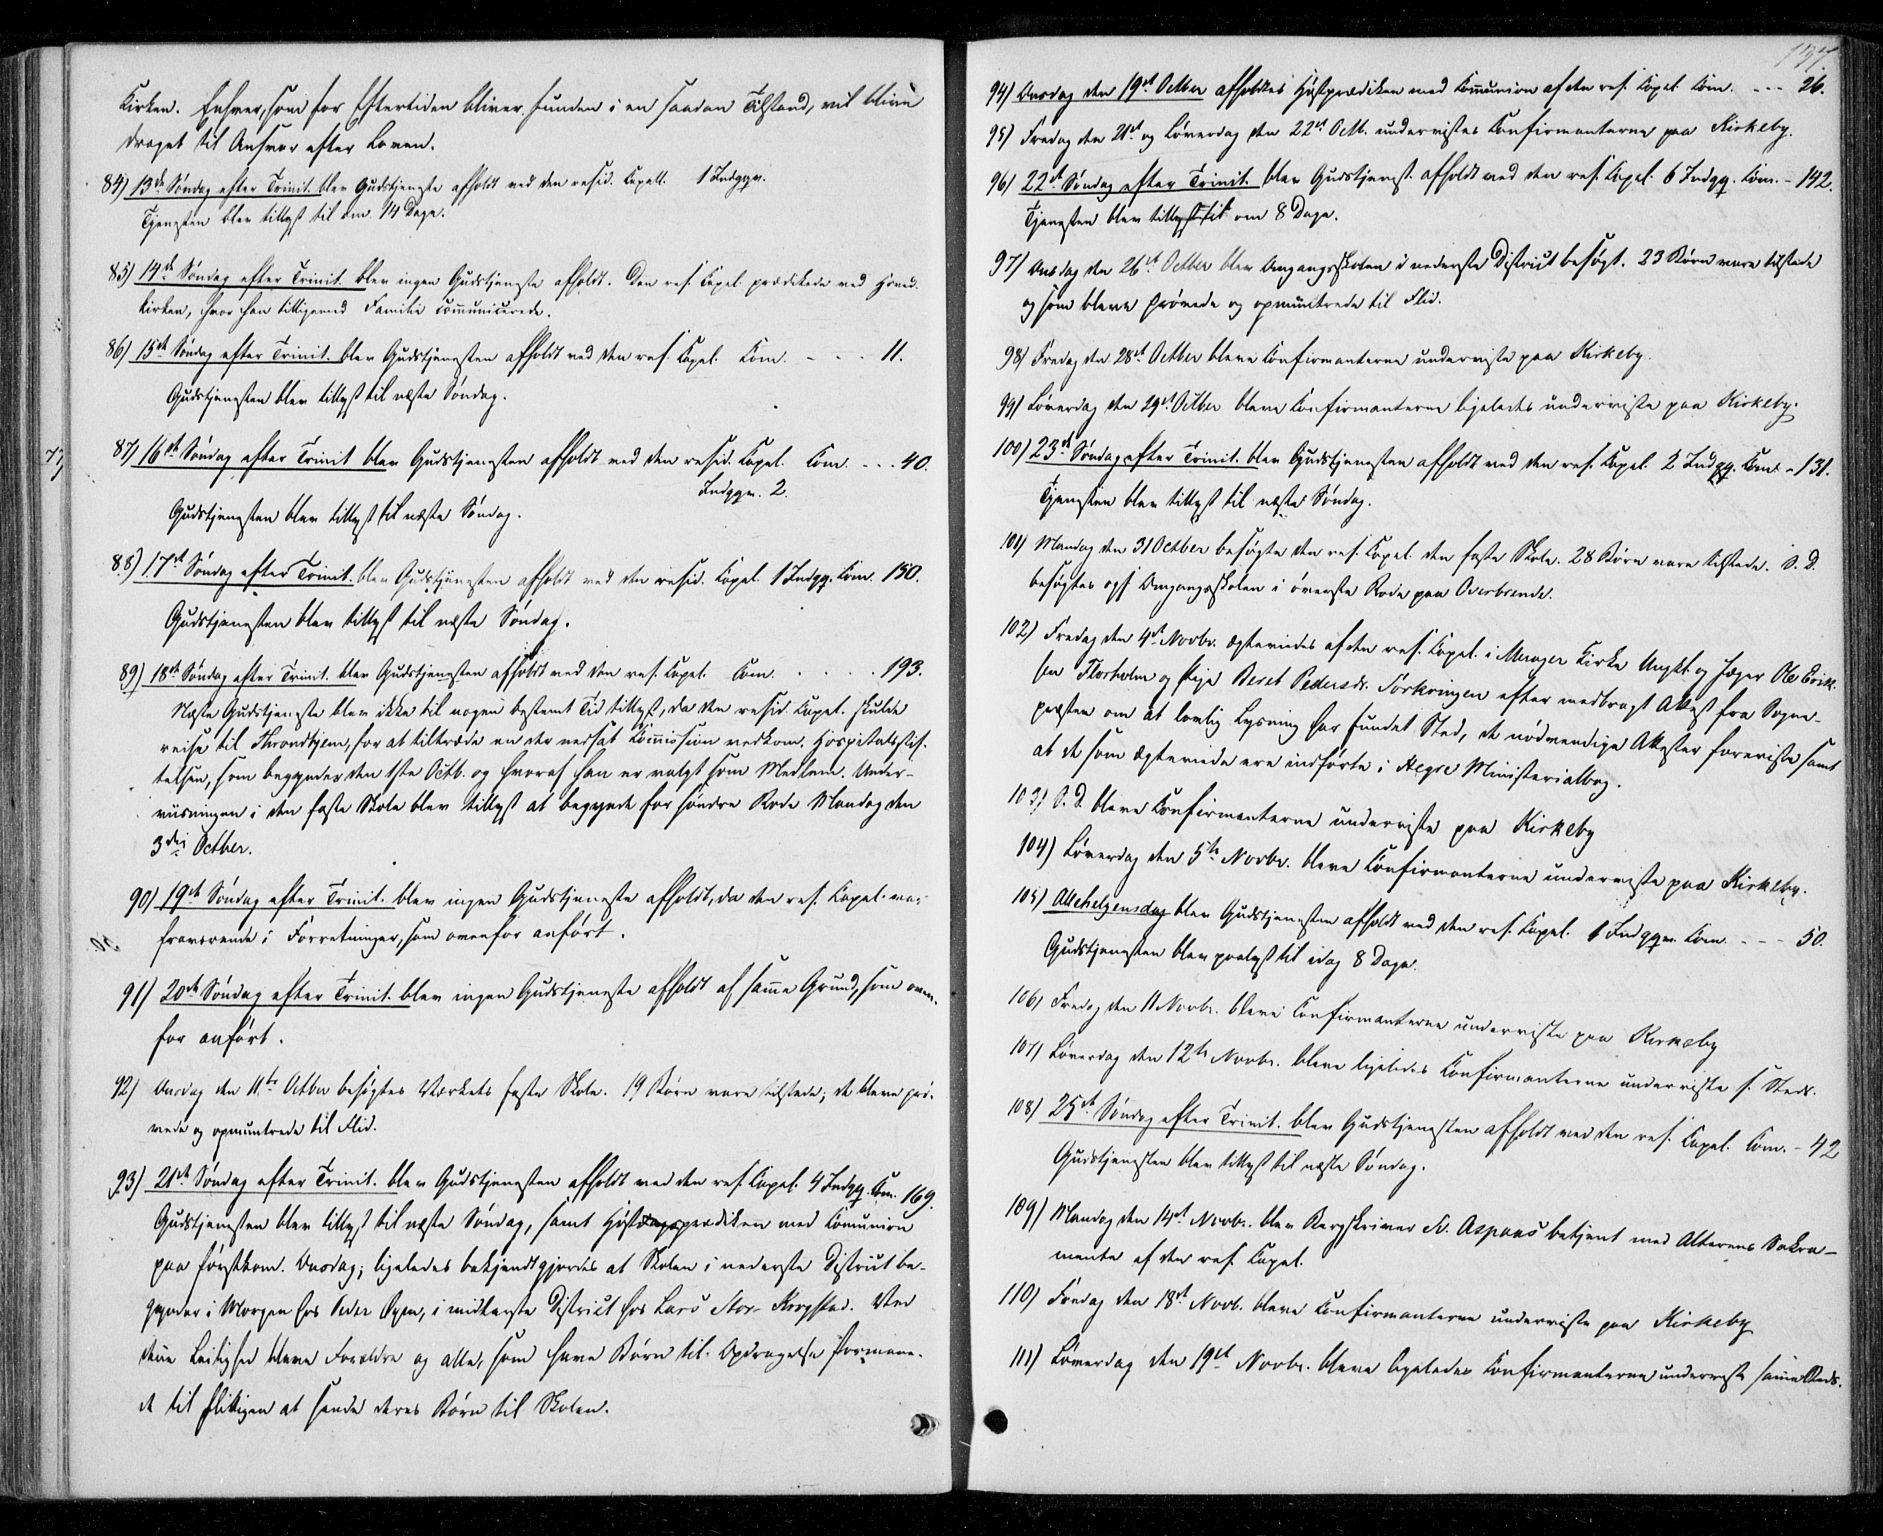 Kirken. Enhver, som for Eftertiden bliver funden i en saadan Tilstand, vil blive
draget til Ansvar efter Loven.
84) 13de Søndag efter Trinit. blev Gudstjeneste afholdt ved den resid. Capell. 1 Indggn.
Tjenesten blev tillyst til om 14 Dage.
85) 14de Søndag efter Trinit. blev ingen Gudstjeneste afholdt. Den res. Capel. prædikede ved Hoved-
kirken, hvor han tilligemed Familie communicerede.
86) 15de Søndag efter Trinit. blev Gudstjenesten afholdt ved den res. Capel. Com. - - - 11.
Gudstjenesten blev tillyst til næste Søndag.
87) 16de Søndag efter Trinit blev Gudstjenesten afholdt ved den resid. Capel. Com. - - - 40.
Indggn. 2.
Gudstjenesten blev tillyst til næste Søndag.
88) 17de Søndag efter Trinit. blev Gudstjenesten afholdt ved den resid. Capel. 1 Indgg. Com. 150.
Gudstjenesten blev tillyst til næste Søndag.
89) 18de Søndag efter Trinit. blev Gudstjenesten afholdt ved den res. Capel. Com. - - - 193.
Næste Gudstjeneste blev ikke til nogen bestemt Tid tillyst, da den resid. Capel. skulde
reise til Throndhjem, for at tiltræde en der nedsat Commission vedkom. Hospitalsstif-
telsen, som begynder den 1ste Octb. og hvoraf han er valgt som Medlem. Under-
viisningen i den faste Skole blev tillyst at begynde for søndre Rode Mandag den
3die October.
90) 19de Søndag efter Trinit. blev ingen Gudstjeneste afholdt, da den res. Capel. var
fraværende i Forretninger, som ovenfor anført.
91) 20de Søndag efter Trinit. blev ingen Gudstjeneste afholdt af samme Grund, som oven-
for anført.
92) Onsdag den 11te Octbr besøgtes Værkets faste Skole. 19 Børn vare tilstede; de bleve prø-
vede og opmuntrede til Flid.
93) 21de Søndag efter Trinit. blev Gudstjenesten afholdt ved den res. Capel. 4 Indgg. Com. 169.
Gudstjenesten blev tillyst til næste Søndag, samt Høstprædiken med Comunion
paa førstkom. Onsdag; ligeledes bekjendtgjordes at Skolen i nederste District be-
gynder i Morgen hos Peder Øyen, i midterste District hos Lars Stor-Borgstad. Ved
denne Leilighed bleve Forældre og alle, som have Børn til Opdragelse formane-
de til flittigen at sende deres Børn til Skolen.
94) Onsdag den 19de October afholdtes Høstprædiken med Communion af den res. Capel. Com. - - - 26.
95) Fredag den 21de og Løverdag den 22de Octb. undervistes Confirmanterne paa Kirkeby.
96) 22de Søndag efter Trinit. blev Gudstjenest. afholdt ved den res. Capel. 6 Indgg. Com. - 142.
Tjenesten blev tillyst til om 8 Dage.
97) Onsdag den 26de October blev Omgangsskolen i nederste District besøgt. 23 Børn vare tilstede
og som bleve prøvede og opmuntrede til Flid.
98) Fredag den 28de October bleve Confirmanterne underviste paa Kirkeby.
99) Løverdag den 29de October bleve Confirmanterne ligeledes underviste paa Kirkeby.
100) 23de Søndag efter Trinit. blev Gudstjenesten afholdt ved den res. Capel. 2 Indgg. Com. - 131.
Tjenesten blev tillyst til næste Søndag.
101) Mandag den 31 October besøgte den res. Capel. den faste Skole. 28 Børn vare tilstede. S. D.
besøgtes ogs. Omgangsskolen i øverste Rode paa Overbrende.
102) Fredag den 4de Novbr. ægteviedes af den res. Capel. i Merager Kirke Ungkl. og Jæger Ole Erik-
sen Storholm og Pige Beret Pedersdr. Torkringen efter medbragt Attest fra Sogne-
præsten om at lovlig Lysning har fundet Sted, de nødvendige Attester foreviste samt
at de som ægteviede ere indførte i Hegre Ministerialbog.
103) S. D. bleve Confirmanterne underviste paa Kirkeby
104) Løverdag den 5te Novbr. bleve Confirmanterne underviste paa Kirkeby.
105) Allehelgensdag blev Gudstjenesten afholdt ved den res. Capel. 1 Indggn. Com. - - - 50.
Gudstjenesten blev paalyst til idag 8 Dage.
106) Fredag den 11 Novbr. bleve Confirmanterne underviste paa Kirkeby
107) Løverdag den 12te Novbr. bleve ligeledes Confirmanterne underviste s. Steds.
108) 25de Søndag efter Trinit. blev Gudstjenesten afholdt ved den res. Capel. Com. - 42
Gudstjenesten blev tillyst til næste Søndag.
109) Mandag den 14de Novbr. blev Bergskriver Aspaas betjent med Alterens Sakra-
mente af den res. Capel.
110) Fredag den 18de Novb. bleve Confirmanterne underviste paa Kirkeby
111) Løverdag den 19de Novbr. bleve ligeledes Confirmanterne underviste samme Steds.